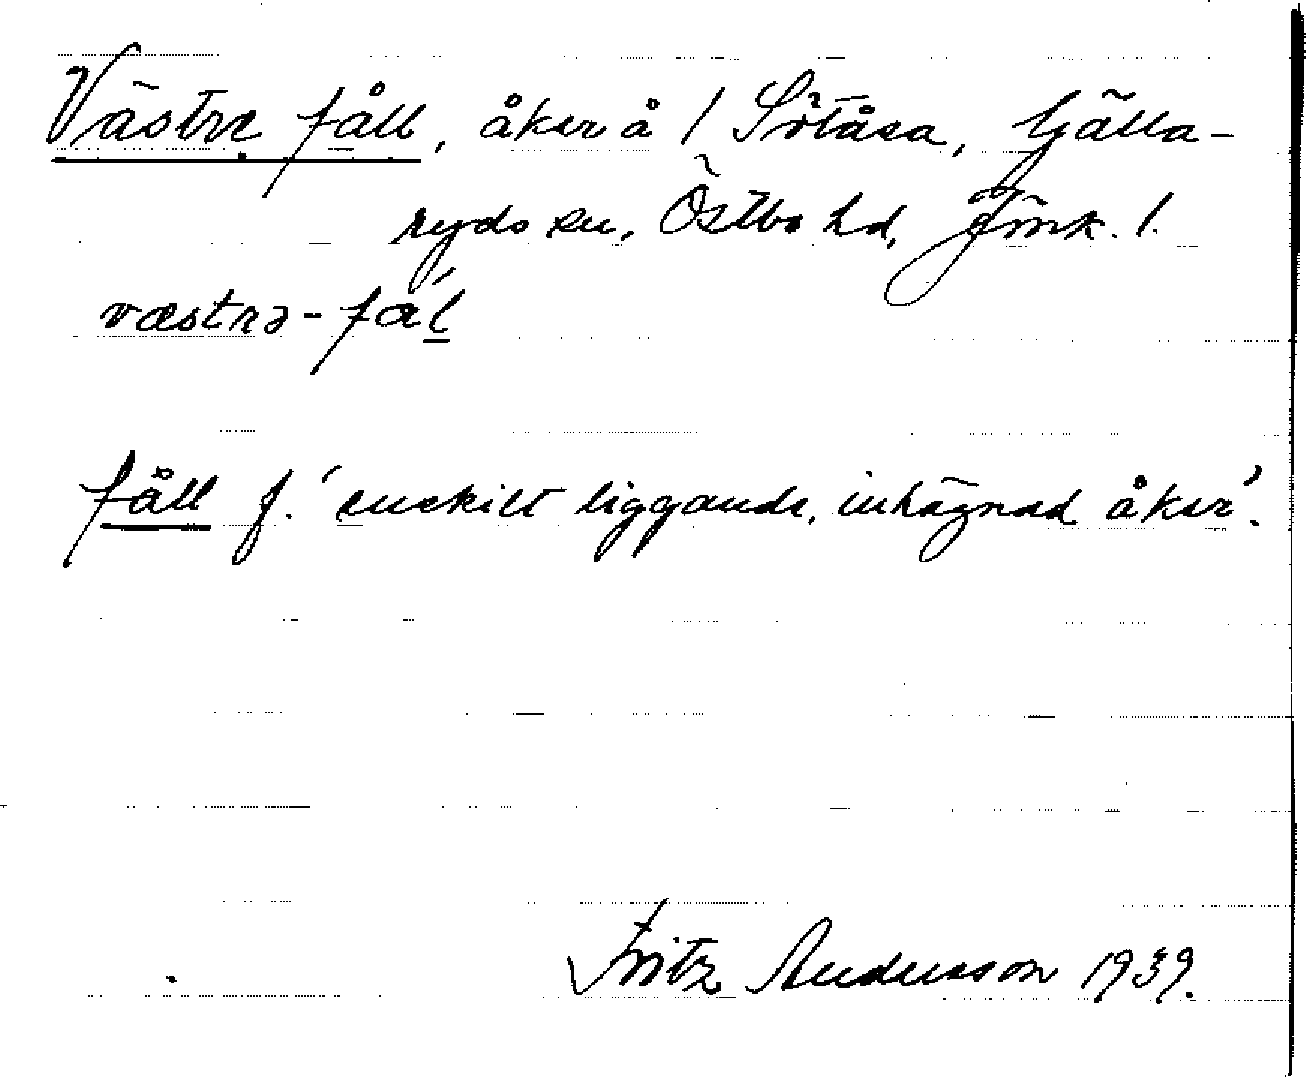 Västre fåll, åker å /Sötåsa, Gälla-
ryds sn, Östbo hd, Jmk. /.
væstrə-fål
fåll f. 'enskilt liggande, inhägnad åker'.
Fritz Andersson 1939.